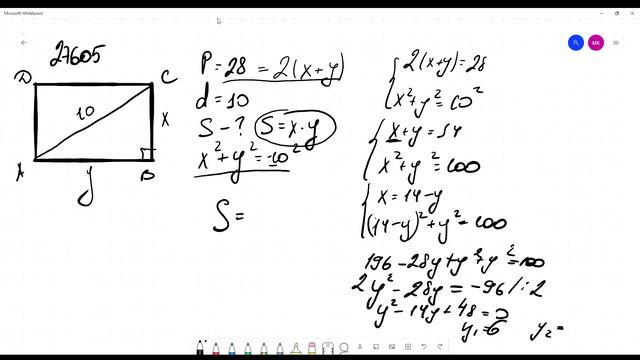 Microsoft Whiteboard
27605
MK
D
C
10
x
A
y
B
P = 28 = 2(x+y)
d = 10
S - ? S = x·y
x² + y² = 10²
S =
2(x+y) = 28
x² + y² = 10²
x + y = 14
x² + y² = 100
x = 14 - y
(14-y)² + y² = 100
196 - 28y + y² + y² = 100
2y² - 28y = -96 /:2
y² - 14y + 48 = 0
y₁ = 6 y₂ =